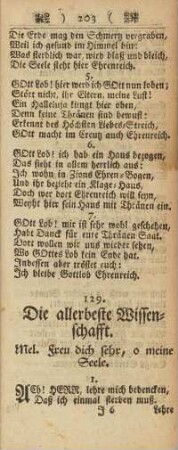 ( 203 )
Die Erde mag den Schmertz vergraben,
Weil ich gesund im Himmel bin:
Was sterblich war, wird blaß und bleich,
Die Seele steht hier Ehrenreich.
5.
GOtt Lob! hier werd ich GOtt nun loben;
Stört nicht, ihr Eltern, meine Lust!
Ein Halleluja klingt hier oben,
Denn keine Thränen sind bewust:
Erkennt des Höchsten Liebes-Streich,
GOtt macht im Creutz auch Ehrenreich.
6.
GOtt Lob! ich hab ein Haus bezogen,
Das sieht in allem herrlich aus:
Ich wohn in Zions Ehren-Bogen,
Und ihr bezieht ein Klage-Haus.
Doch wer dort Ehrenreich will seyn,
Weyht hier sein Haus mit Thränen ein.
7.
GOtt Lob! mir ist sehr wohl geschehen,
Habt Danck für eure Thränen Saat.
Dort wollen wir uns wieder sehen,
Wo GOttes Lob kein Ende hat.
Indessen aber tröstet euch:
Ich bleibe Gottlob Ehrenreich.
129.
Die allerbeste Wissen-
schafft.
Mel. Freu dich sehr, o meine
Seele.
1.
ACh! HERR, lehre mich bedencken,
Daß ich einmal sterben muß.
J 6 Lehre